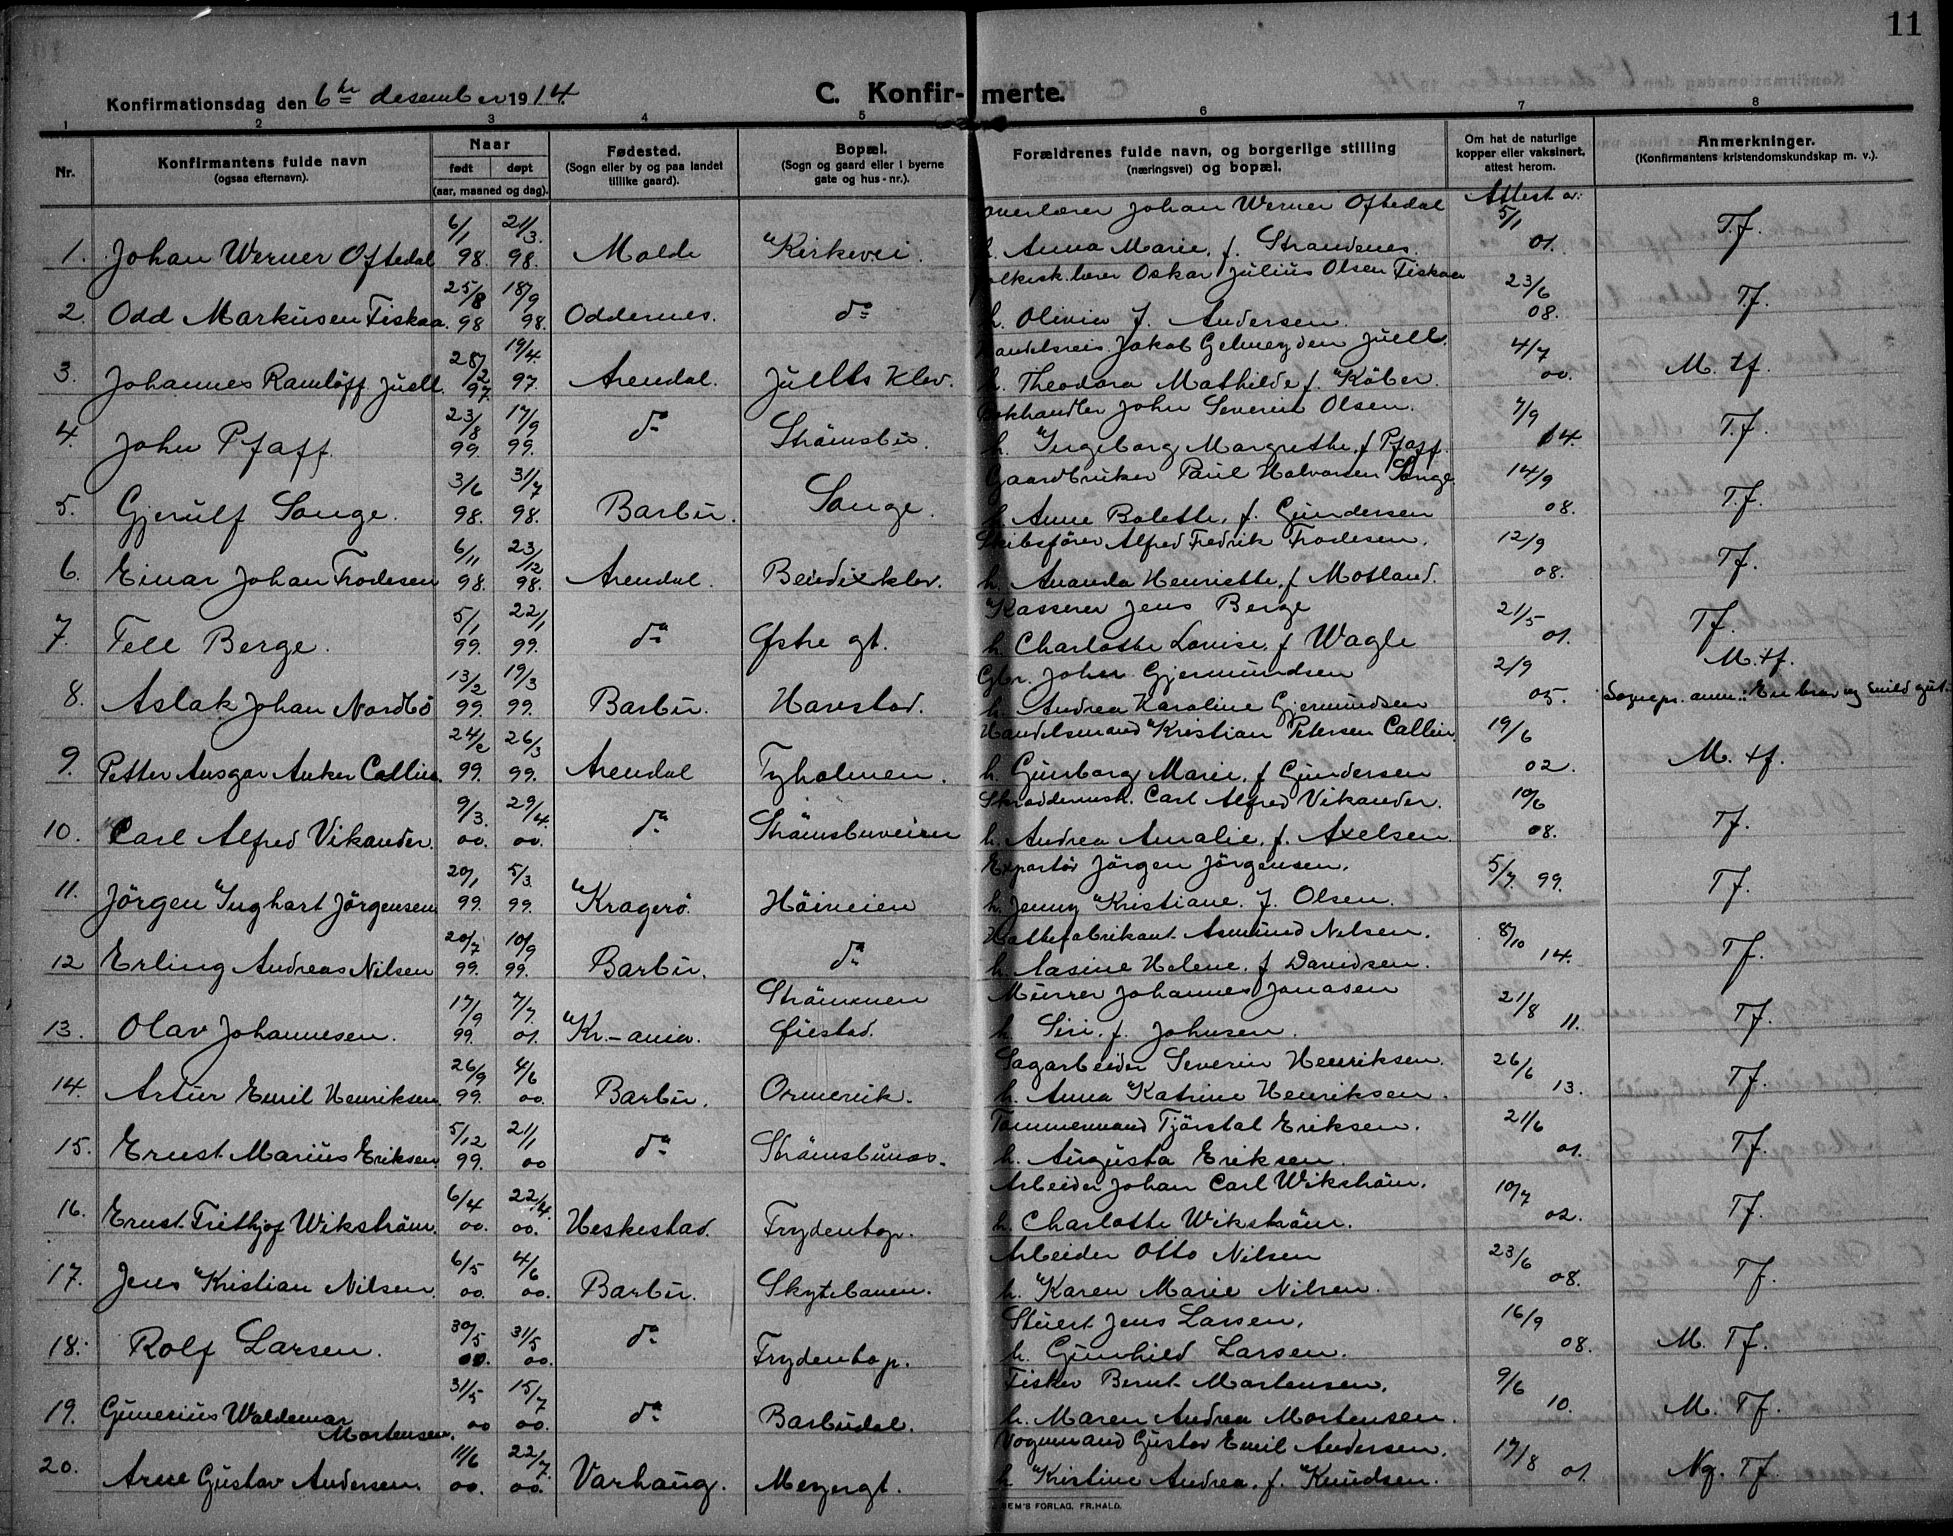 11
Konfirmationsdag den 6te desember 1914. C. Konfirmerte.
1 2 3 4 5 6 7 8
Nr. Konfirmantens fulde navn (ogsaa efternavn). Naar født døpt (aar, maaned og dag). Fødested. (Sogn eller by og paa landet tillike gaard). Bopæl. (Sogn og gaard eller i byerne gate og hus-nr.). Forældrenes fulde navn, og borgerlige stilling (næringsvei) og bopæl. Om hat de naturlige kopper eller vaksinert, attest herom. Anmerkninger. (Konfirmantens kristendomskundskap m. v.).
Johan Werner Oftedal Attest av:
1. Johan Werner Oftedal 6/1 98. 21/3. 98. Molde Kirkevei. h. Anna Marie, f. Strandenes. 5/1 01. T.f.
Oskar Julius Olsen Fiskaa
2. Odd Markusen Fiskaa. 25/8 98 18/9 98. Oddernes. do h. Olivia f. Andersen. 23/6 08. T.f.
Handelsreis. Jakob Gelmeyden Juell.
3. Johannes Ramløff Juell. 28/2 97. 19/4. 97. Arendal. Juells Klev. h. Theodora Mathilde f. Køber. 4/7 00. M. tf.
Bokhandler John Severin Olsen.
4. John Pfaff. 23/8 99. 17/9 99. do Strømsbu. h. Ingeborg Margrethe, f Pfaff. 7/9 14. T.f.
Gaardbruker Paul Halvorsen Songe
5. Gjerulf Songe. 3/6 98. 31/7 98. Barbu. Songe. h. Anne Bolette, f. Gundersen 14/9 08. T.f.
Skibsfører Alfred Fredrik Frodesen.
6. Einar Johan Frodesen 6/11 98. 23/12 98. Arendal. Bendixklev. h. Ananda Henriette, f Motland. 12/9 08. T.f.
Kasserer Jens Berge
7. Tell Berge. 5/1 99. 22/1 99. do Østre gt. h Charlotte Lovise, f Wagle 21/5 01. T.f.
Gbr. Johan Gjermundsen M. tf.
8. Aslak Johan Nordbö 13/2 99. 19/3 99. Barbu. Havstad. h Andrea Karoline Gjermundsen 2/9 05. Sognepr. anm.: En brav og snild gut.
Handelsmand Kristian Petersen Callin
9. Petter Ansgar Anker Callin. 24/2 99. 26/3 99. Arendal Tyholmen. h. Gunborg Marie, f Gundersen 19/6 02. M. tf.
Skræddermsh. Carl Alfred Vikander.
10. Carl Alfred Vikander. 9/3. 00. 29/4. 00. do Strømsbuveien h. Andrea Amalie, f. Axelsen. 10/6 08. T.f.
Exportør Jörgen Jörgensen.
11. Jörgen Inghart Jörgensen 20/1 99. 5/3. 99. Kragerö. Höiveien h. Jenny Kristiane. f. Olsen. 5/7. 99. T.f.
Hattefabrikant Asmund Nilsen.
12 Erling Andreas Nilsen 20/7 99. 10/9 99. Barbu. do h. Aasine Helene. f Davidsen. 8/10 14. T.f.
Strømmen Murer Johannes Jonasen
13. Olav Johannesen. 17/9 99. 7/7. 01. Kr.-ania. Øiestad. h Siri, f. Johnsen. 21/8 11. T.f.
Sagarbeider Severin Henriksen.
14. Artur Emil Henriksen 26/9 99. 4/6 00. Barbu. Ormervik. h. Anna Katrine Henriksen. 26/6 13. T.f.
Tømmermand Tjörstal Eriksen.
15. Ernst Marius Eriksen 5/12 99. 21/1 00 do Strømsbunes. h. Augusta Eriksen. 21/6 01. T.f.
Arbeider Johan Carl Wikstrøm.
16. Ernst Frithjof Wikstrøm. 6/4 00. 22/4. 00. Heskestad. Frydentop. h. Charlotte Wikstrøm. 10/7 02. T.f.
Arbeider Otto Nilsen
17. Jens Kristian Nilsen. 6/5 00. 4/6 00. Barbu. Skytebanen. h. Karen Marie Nilsen. 23/6 08. T.f.
Stuert Jens Larsen.
18. Rolf Larsen. 30/5 00. 31/5 00. do Frydentop. h. Gunhild Larsen. 16/9 08. M. T.f.
Fisker Bernt Martensen.
19. Gunerius Waldemar 31/5 00 15/7 00. do Barbudal. h. Maren Andrea Mortensen. 9/6 10. M. T.f.
Mortensen.
Vognmand Gustav Emil Andersen.
20. Arne Gustav Andersen. 11/6 00. 22/7. 00. Varhaug. Meyergt. h Kristine Andrea, f. Knudsen. 17/8 01. Ng. T.f.
FORLAG, FR.HALD.